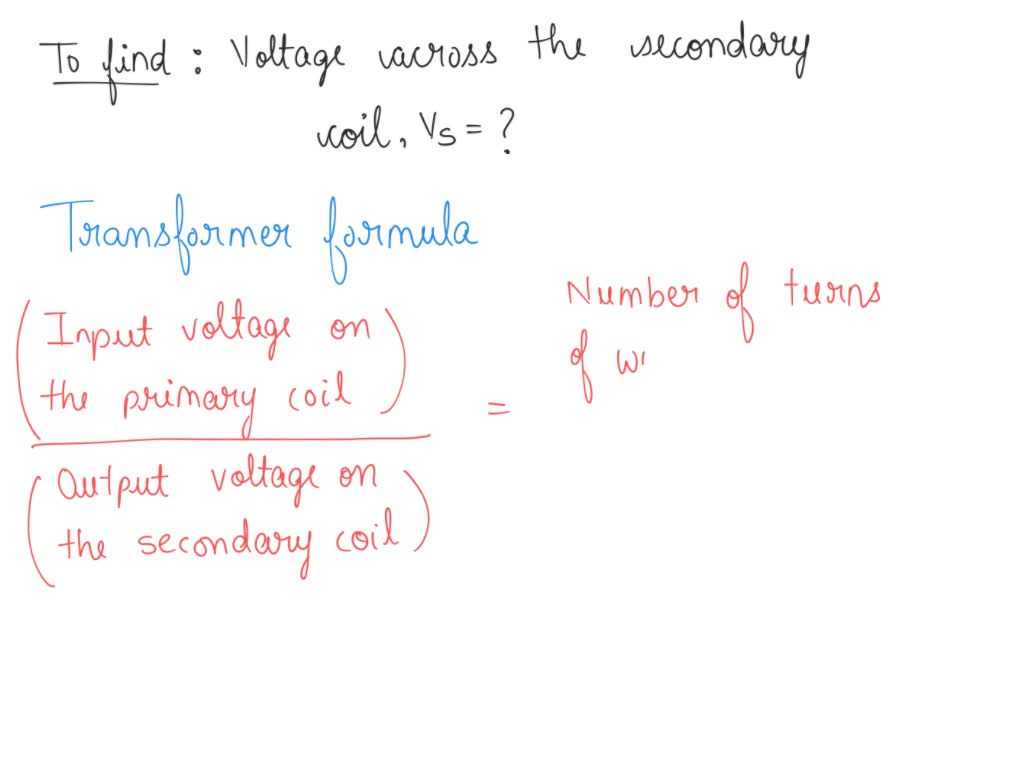 To find : Voltage across the secondary
coil, Vs = ?
Transformer formula
(Input voltage on
the primary coil)
=
(Output voltage on
the secondary coil)
Number of turns
of w